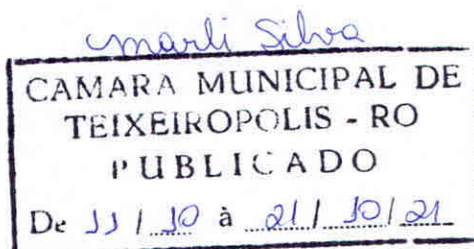 Marli Silva
CAMARA MUNICIPAL DE
TEIXEIROPOLIS - RO
PUBLICADO
De 11 / 10 à 21 / 10 / 21